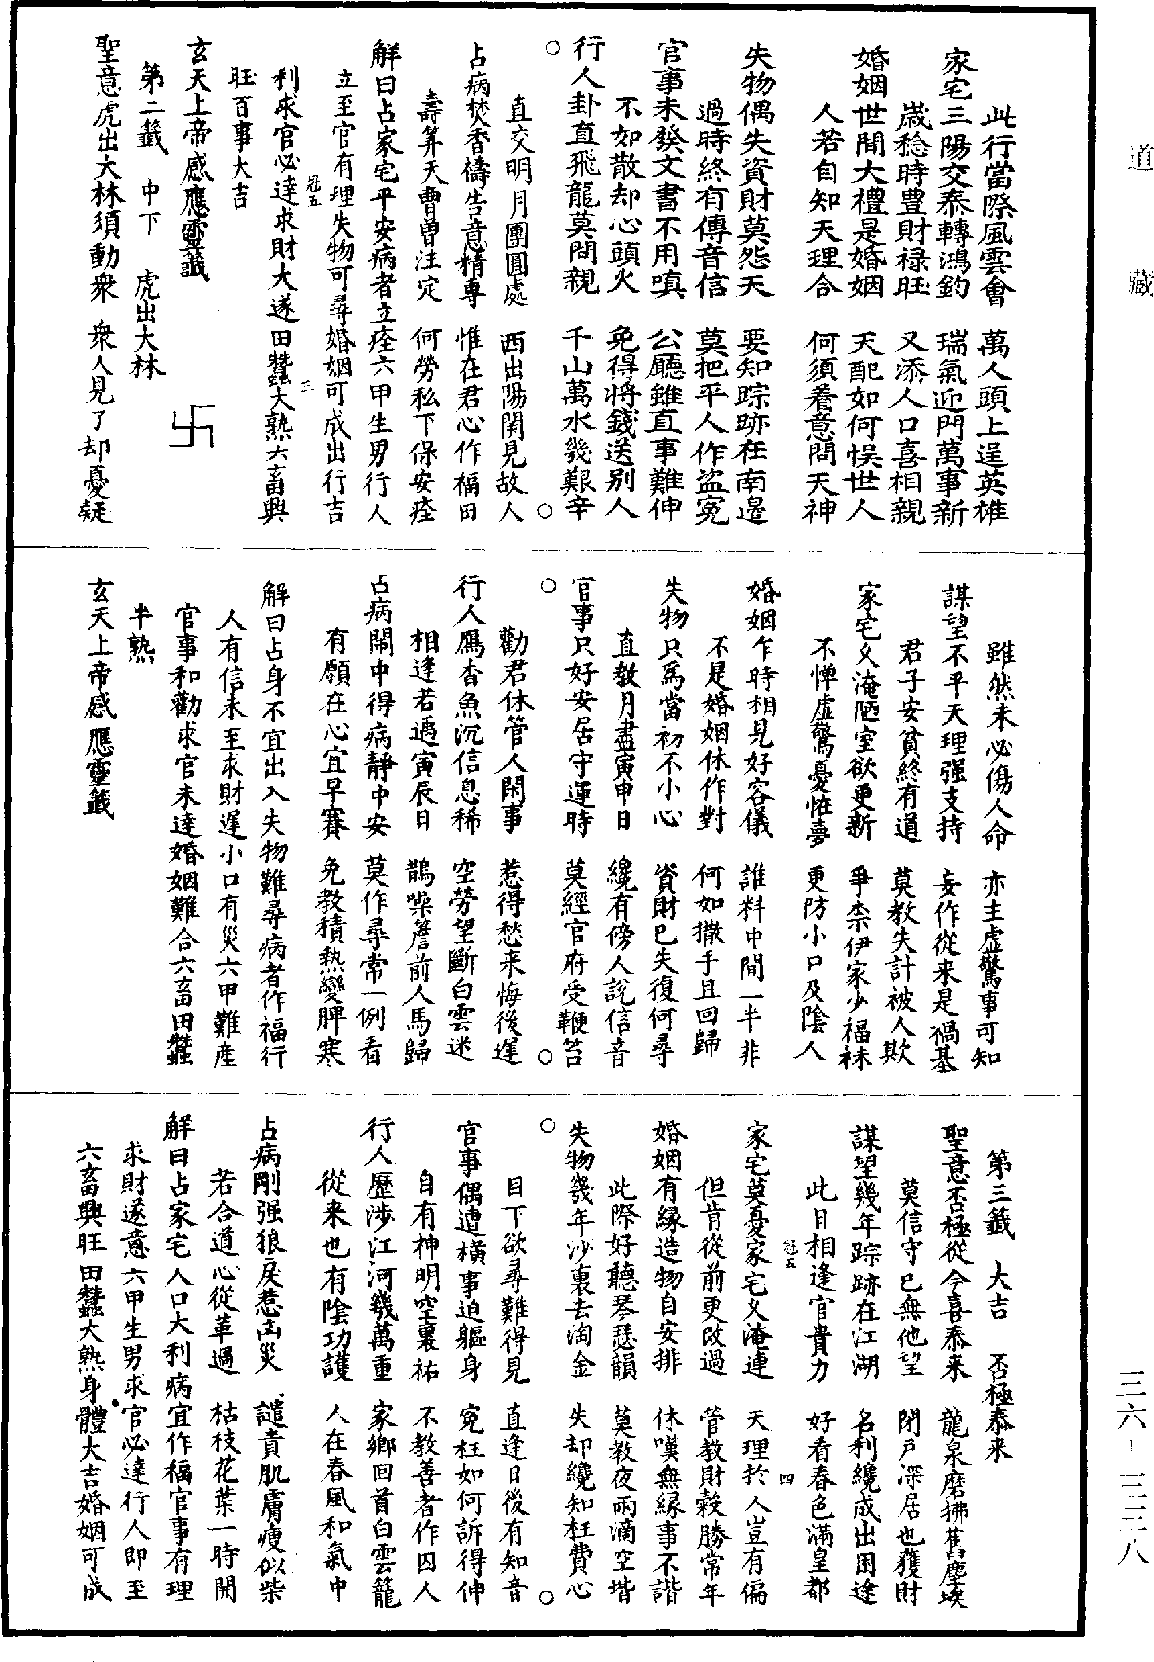 道藏
此行當際風雲會　萬人頭上逞英雄
家宅三陽交泰轉鴻鈞　瑞氣迎門萬事新
歲稔時豊財禄旺　又添人口喜相親
婚姻世間大禮是婚姻　天配如何悞世人
人若自知天理合　何須着意問天神
失物偶失資財莫怨天　要知踪跡在南邊
過時終有傳音信　莫把平人作盜寃
官事未發文書不用嗔　公廳雖直事難伸
不如散却心頭火　免得將錢送別人
行人卦直飛龍莫問親　千山萬水幾艱辛
○　○
直交明月團圓處　西出陽關見故人
占病焚香禱告意精專　惟在君心作福田
壽筭天曹曾注定　何勞私下保安痊
解曰占家宅平安病者立痊六甲生男行人
立至官有理失物可尋婚姻可成出行吉
冠五　三
利求官必達求財大遂田蠶大熟六畜興
旺百事大吉
玄天上帝感應靈籤
第二籤　中下　虎出大林　卐
聖意虎出大林須動衆　衆人見了却憂疑
雖然未必傷人命　亦主虛驚事可知
謀望不平天理强支持　妄作從来是禍基
君子安貧終有道　莫教失計被人欺
家宅久淹陋室欲更新　爭柰伊家少福祿
不惮虛驚憂怪夢　更防小口及陰人
婚姻乍時相見好容儀　誰料中間一半非
不是婚姻休作對　何如撒手且回歸
失物只爲當初不小心　資財已失復何尋
直教月盡寅申日　纔有傍人說信音
官事只好安居守運時　莫經官府受鞭笞
○　○
勸君休管人閑事　惹得愁来悔後遲
行人鴈杳魚沉信息稀　空勞望斷白雲迷
相逢若遇寅辰日　鵲噪簷前人馬歸
占病鬧中得病静中安　莫作尋常一例看
有願在心宜早賽　免教積熱變脾寒
解曰占身不宜出入失物難尋病者作福行
人有信未至求財遲小口有災六甲難産
官事和勸求官未達婚姻難合六畜田蠶
半熟
玄天上帝感應靈籤
第三籤　大吉　否極泰来
聖意否極從今喜泰来　龍泉磨拂舊塵埃
莫信守已無他望　閉戸深居也獲財
謀望幾年踪跡在江湖　名利纔成出困途
此日相逢官貴力　好看春色滿皇都
冠五　四
家宅莫憂家宅久淹連　天理於人豈有偏
但肯從前更改過　管教財穀勝常年
婚姻有緣造物自安排　休嘆無緣事不諧
此際好聽琴瑟韻　莫教夜雨滴空堦
失物幾年沙裏去淘金　失却纔知枉費心
○　○
目下欲尋難得見　直逢日後有知音
官事偶遭橫事迫軀身　寃枉如何訴得伸
自有神明空裏祐　不教善者作囚人
行人歷涉江河幾萬重　家鄉回首白雲籠
從来也有陰功護　人在春風和氣中
占病剛强狼戾惹凶災　譴責肌膚瘦似柴
若合道心從革過　枯枝花葉一時開
解曰占家宅人口大利病宜作福官事有理
求財遂意六甲生男求官必達行人即至
六畜興旺田蠶大熟身體大吉婚姻可成
三六—三三八